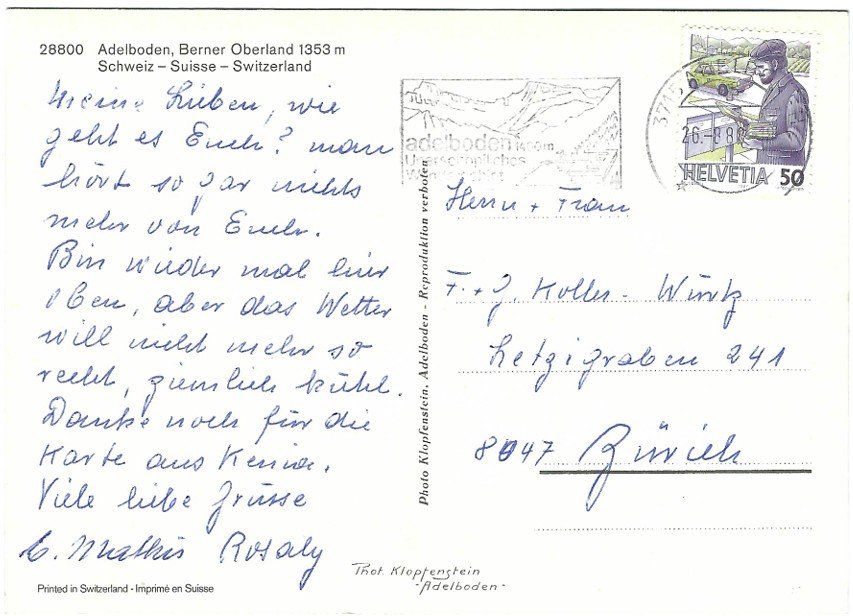 28800 Adelboden, Berner Oberland 1353 m
Schweiz – Suisse – Switzerland
Meine Lieben, wie
geht es Euch? man
hört so gar nichts
mehr von Euch.
Bin wieder mal hier
oben, aber das Wetter
will nicht mehr so
recht, ziemlich kühl.
Danke noch für die
Karte aus Kenia.
Viele liebe Grüsse
Mathis Rosaly
Printed in Switzerland - Imprimé en Suisse
Photo Klopfenstein, Adelboden - Reproduktion verboten
Phot. Klopfenstein
-Adelboden-
adelboden
Unerschöpfliches
3715
26.-9.88
HELVETIA 50
Herrn + Frau
F. + J. Koller - Würtz
Letzigraben 241
8047 Zürich